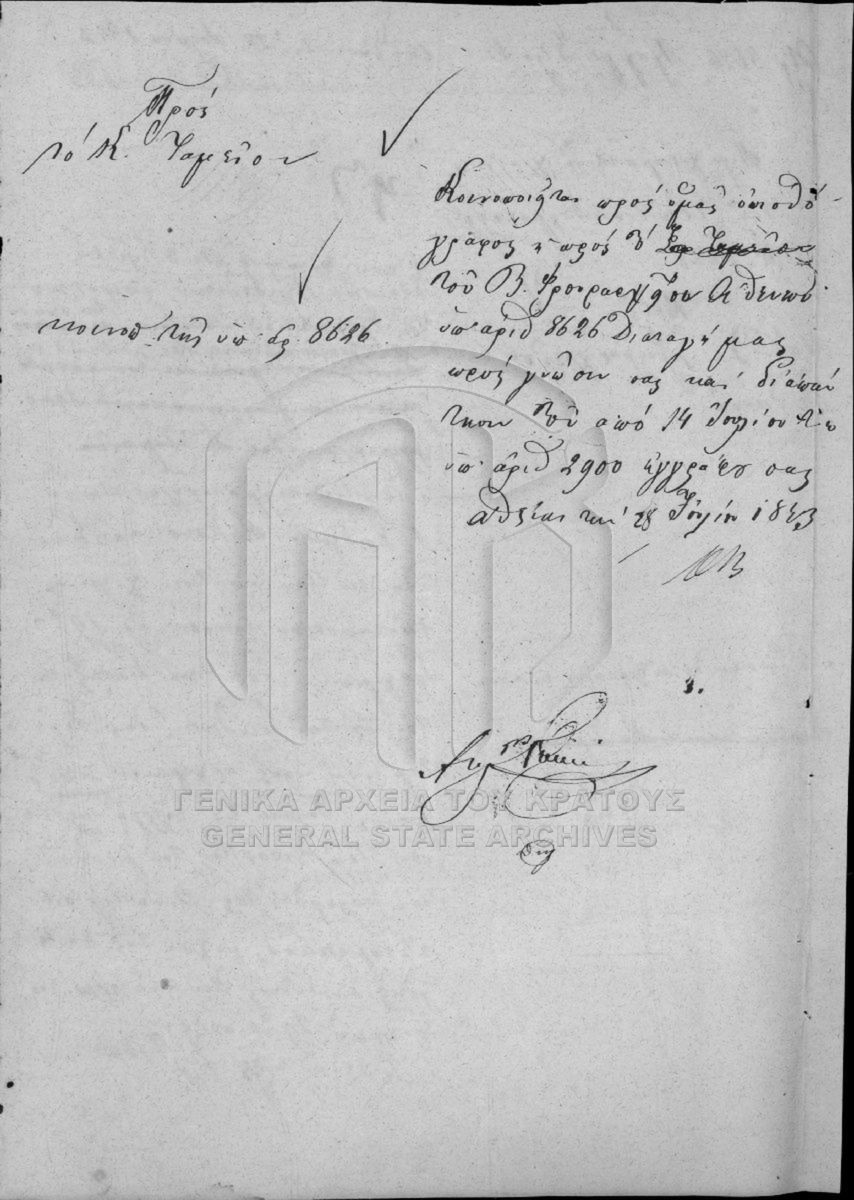 Πρός
τό Κ. Ταμεῖον
κοινοπ. τῆς ὑπ' ἀρ. 8626
Κοινοποιῆται πρός ὑμᾶς ὀπισθό-
γραφος ἡ πρός τό
τοῦ Β. Φρουραρχεῖον Ἀθηνῶν
ὑπ' ἀριθ 8626 Διαταγή μας
πρός γνῶσιν σας καί δι' ἀπάν
τησιν τοῦ ἀπό 14 Ἰουλίου
ὑπ' ἀριθ 2900 ἐγγράφου σας
Ἀθήνας τήν 28 Ἰουλίου 1853
ΓΕΝΙΚΑ ΑΡΧΕΙΑ ΤΟΥ ΚΡΑΤΟΥΣ
GENERAL STATE ARCHIVES